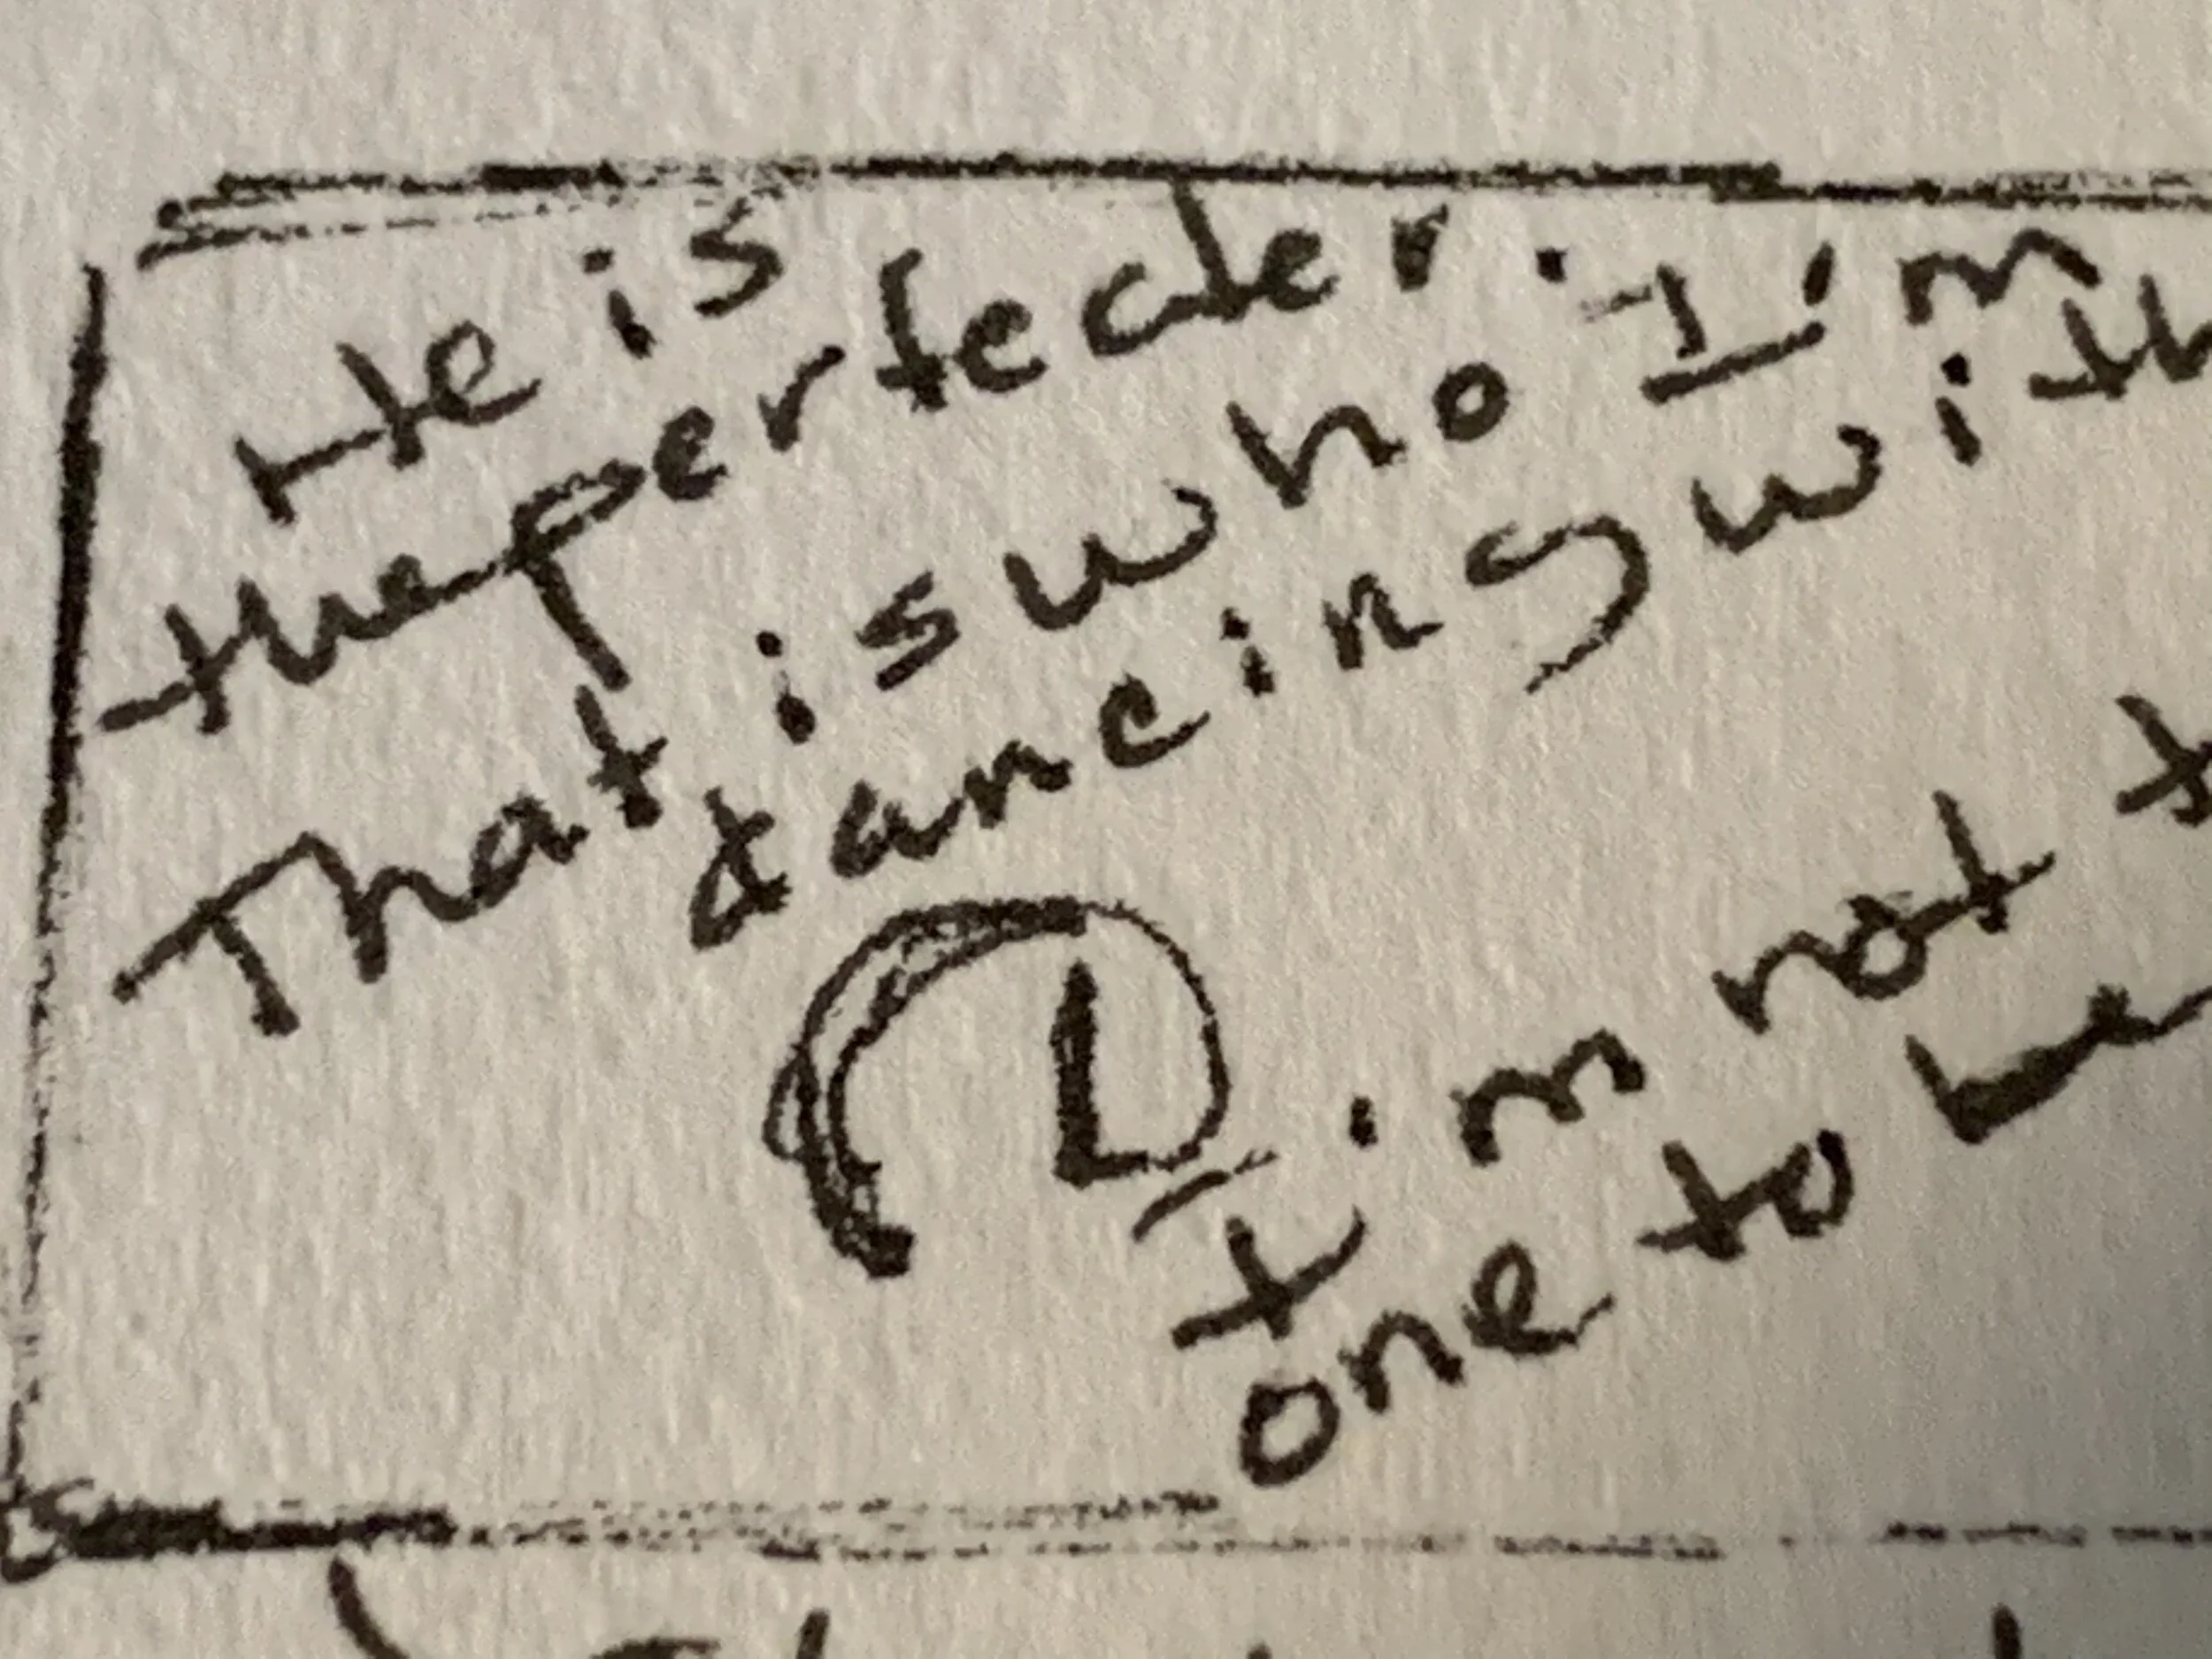 He is
the perfecter.
That is who I'm
dancing with
I'm not t
one to be